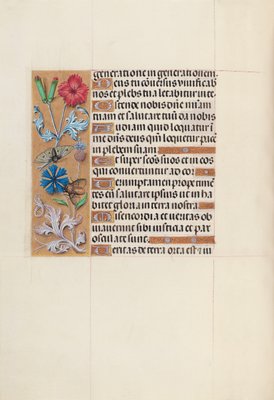 generatione in generationem
Deus tu conversus vivificabis
nos et plebs tua letabitur in te
Ostende nobis dne miam
tuam et salutare tuu da nobis
Audiam quid loquatur i
me dns deus qm loquetur pace
in plebem suam
Et super scos suos et in eos
qui convertuntur ad cor
Verumptamen prope time
tes eu salutare ipsius ut inha
bitet gloria in terra nostra
Misericordia et veritas ob
viaverunt sibi iusticia et pax
osculate sunt
Veritas de terra orta est et iu